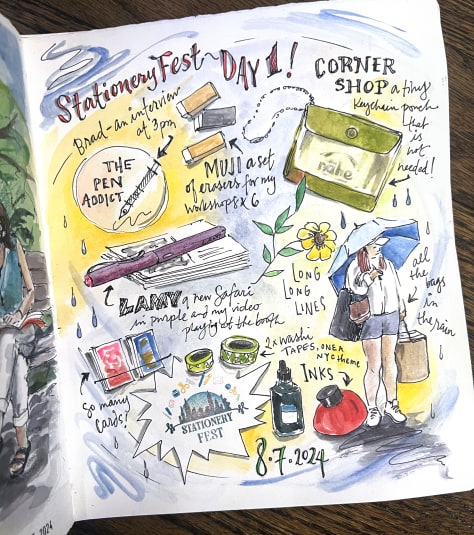 StationeryFest~ DAY 1!
Brad-an interview
at 3pm
THE
PEN
ADDICT.
MUJI a set
of erasers for my
workshops x 6
CORNER
SHOP a tiny
keychain pouch
that
is
not
needed!
nähe
LAMY a new Safari
in purple and my video
playing at the booth
LONG
LONG
LINES
all
the
bags
in
the rain
so many
cards!
2x washi
TAPES, ONE A
NYC theme
INKS
STATIONERY
FEST
8.7.2024
2024